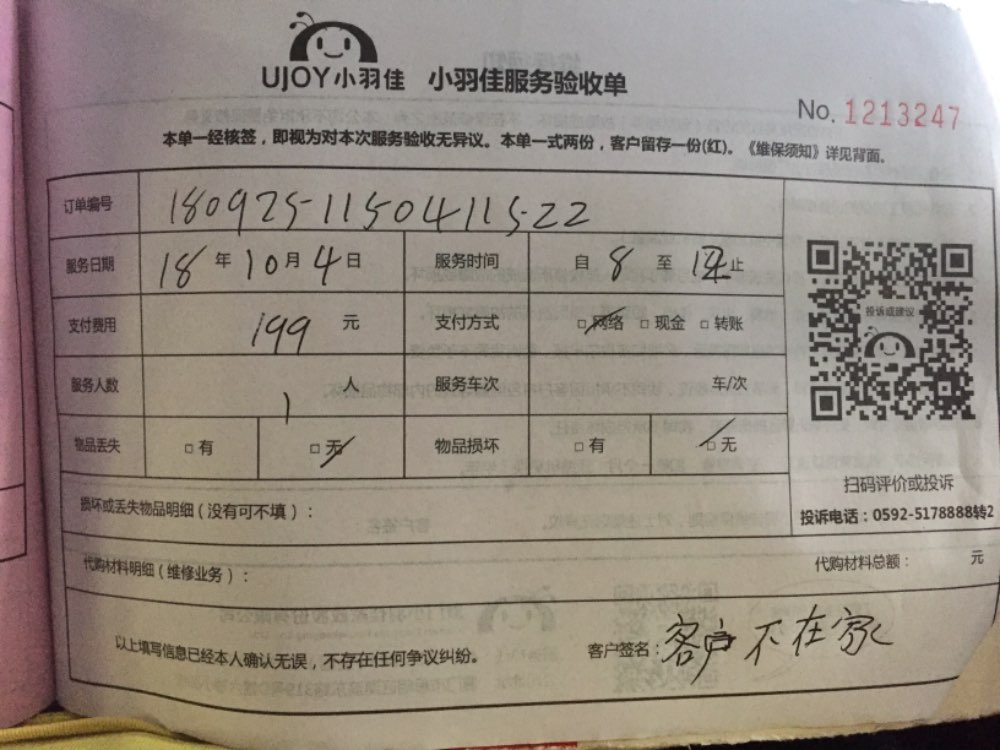 UJOY小羽佳 小羽佳服务验收单
No. 1213247
本单一经核签，即视为对本次服务验收无异议。本单一式两份，客户留存一份(红)。《维保须知》详见背面。
订单编号 180925-1150411522
服务日期 18 年 10 月 4 日 服务时间 自 8 至 12 止
支付费用 199 元 支付方式 □网络 □现金 □转账
服务人数 1 人 服务车次 车/次
物品丢失 □有 □无 物品损坏 □有 □无
投诉或建议
扫码评价或投诉
投诉电话：0592-5178888转2
损坏或丢失物品明细（没有可不填）：
代购材料明细（维修业务）： 代购材料总额： 元
以上填写信息已经本人确认无误，不存在任何争议纠纷。 客户签名：客户不在家